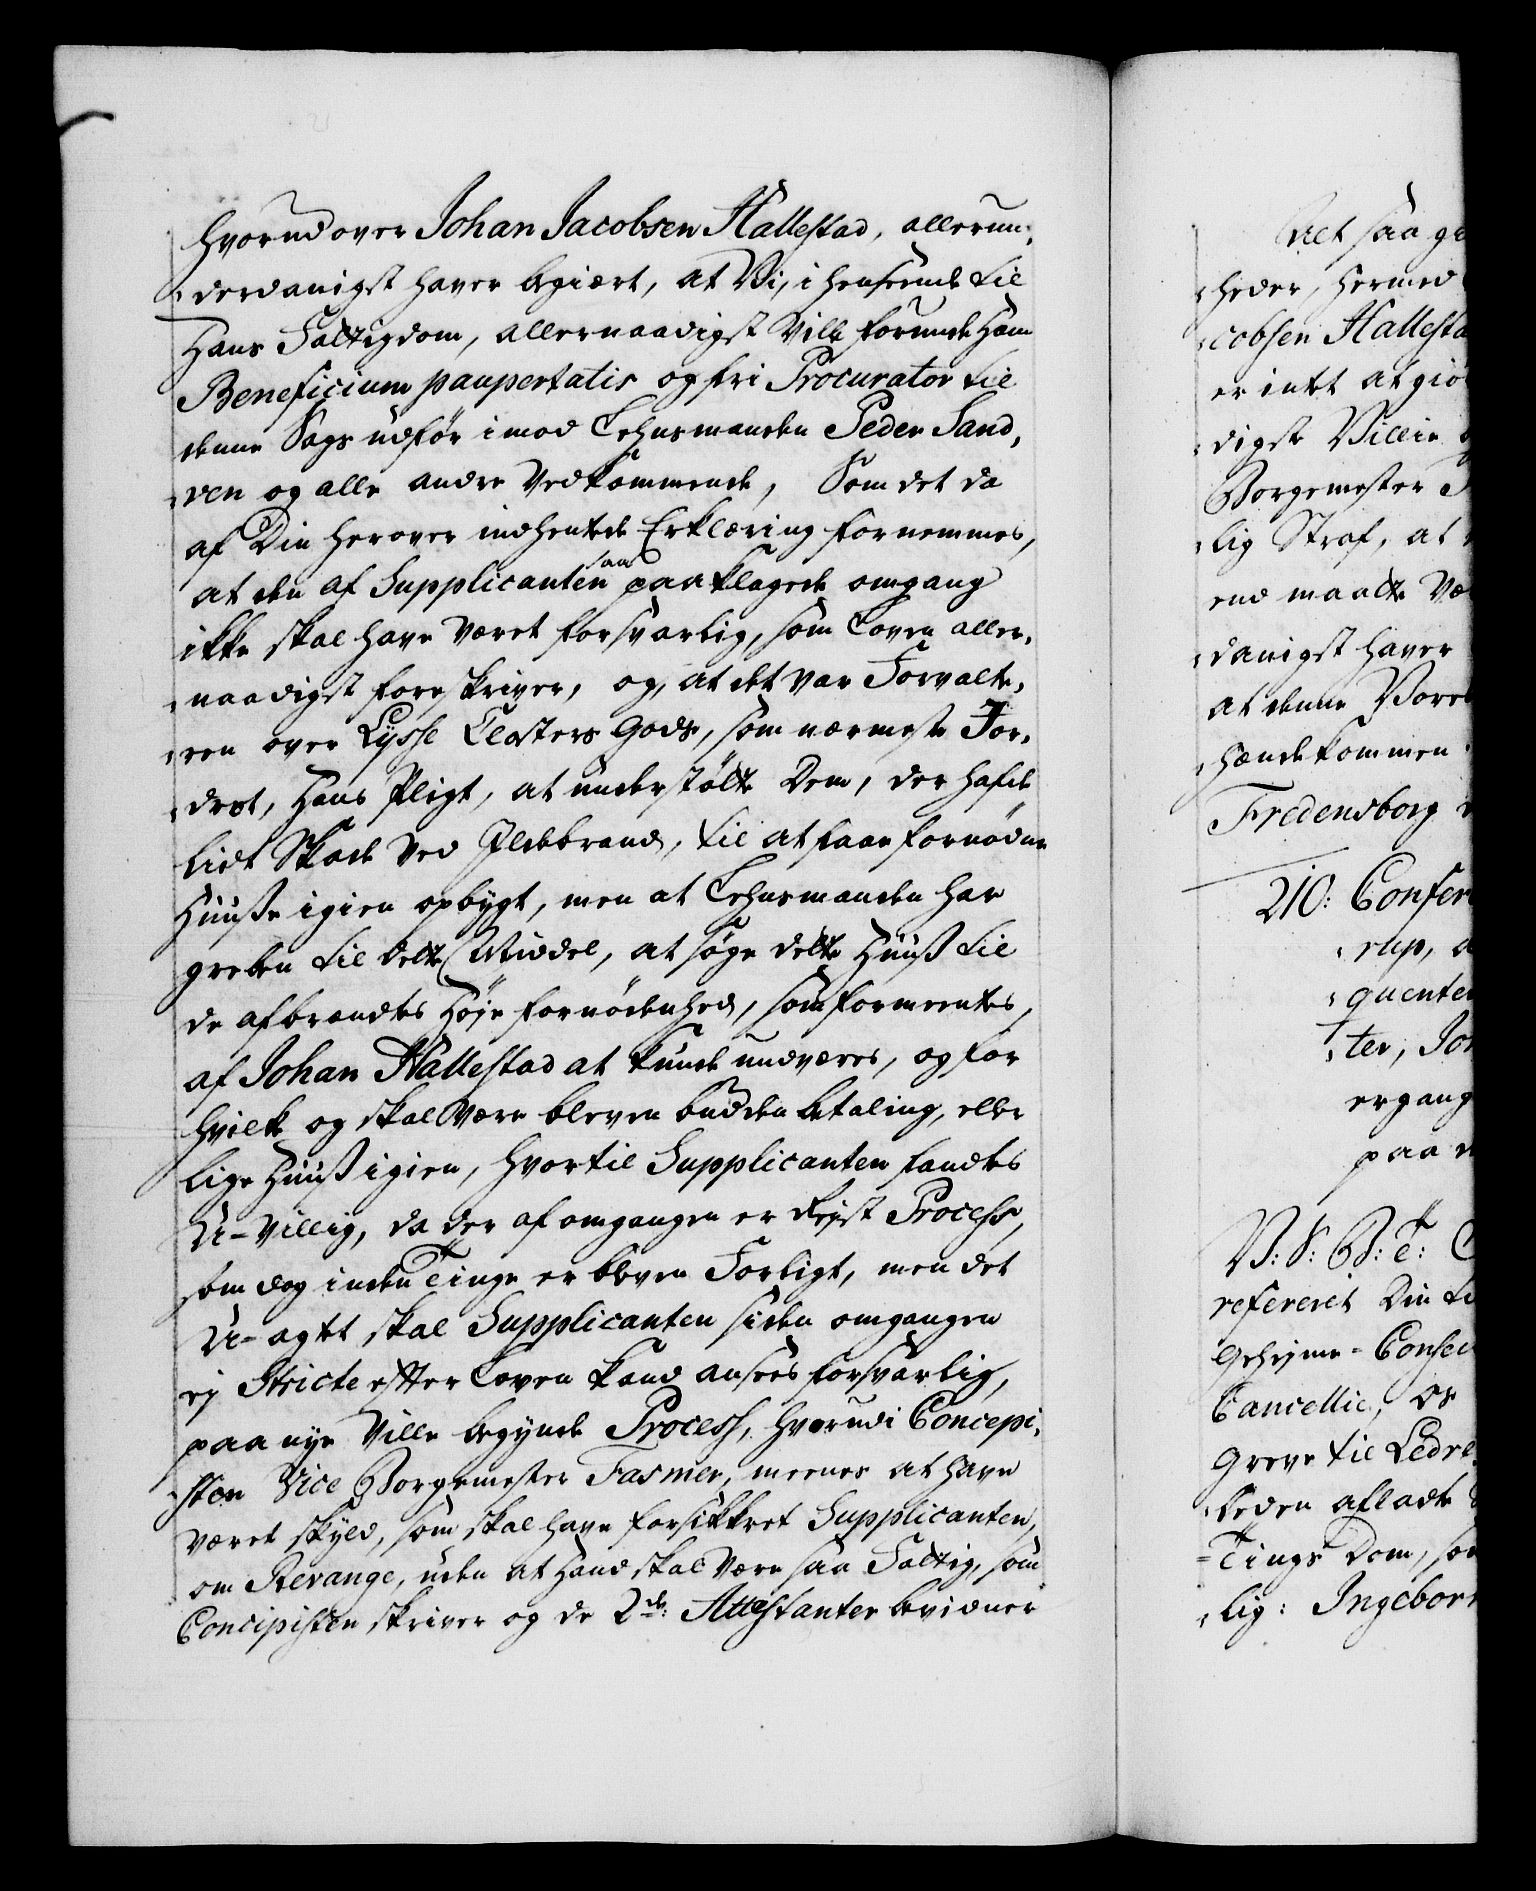 hvorudover Johan Jacobsen Hallestad, allerun-
-derdanigst haver begiært, at Vi, i henseende til
Hans Fattigdom, allernaadigst Ville forunde Ham
Beneficium paupertatis og fri Procurator til
denne Sags udför imod Lehnsmanden Peder Sand-
-ven og alle andre Vedkommende, Som det da
af Din herover indhentede Erklæring fornemmes,
at den af Supplicanten saa paaklagede omgang
ikke skal have været forsvarlig, som Loven aller-
-naadigst foreskriver, og, at det var Forvalte-
-ren over Lysse Closters Gods, som nærmeste For-
-dret, Hans Pligt, at understötte Dem, der hafde
lidt Skade ved Ildebrand, til at faae fornødne
Huuse igien opbygt, men at Lehnsmanden har
greben til dette Middel, at søge dette Huuß til
de afbrændtes Høje fornødenhed, som formeentes,
af Johan Hallestad at kunde undværes, og for
hvilke og skal være bleven budden betaling, eller
lige Huuß igien, hvortil Supplicanten fandtes
U-villig, da der af omgangen er Rejst Process,
som dog inden Tinge er bleven Forligt, men det
U-agtet skal Supplicanten siden omgangen
ej Stricte efter Loven kand ansees forsvarlig,
paa nye Ville begynde Process, hvorudi Concepi-
-sten Vice Borgemester Fasmer, meenes at have
været skyld, som skal have forsikkret Supplicanten,
om Revange, uden at Hand skal være saa Fattig, som
Concipisten skriver og de 2de: Attestanter bevidner
Alt saa gi
-heder, hermed
-cobsen Hallesta
er intet at giö
-digste Villie
Borgemester
-lig Straf, at
end maatte Væ
-danigst haver
at denne Vores
-hændekommen
Fredensborg
210: Confere
-rup, a
-quenter
-ter, Joh
ergang
paa
V: S: G: T: C
refereret Din til
Geheyme-Consei
Cancellie, Os
Greve til Ledre
-beden afladte
-Tings Dom, som
-lig: Ingebor